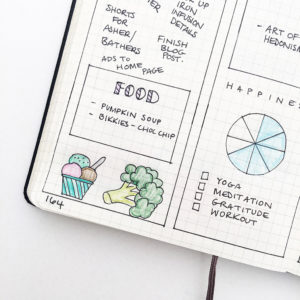 SHORTS
FOR
ASHER/
BATHERS
ADS TO
HOME PAGE
UP
IRON
INFUSION
DETAILS
FINISH
BLOG
POST.
FOOD
- PUMPKIN SOUP
- BIKKIES - CHOC CHIP
164
- ART OF
HEDONISM
HAPPINE
YOGA
MEDITATION
GRATITUDE
WORKOUT